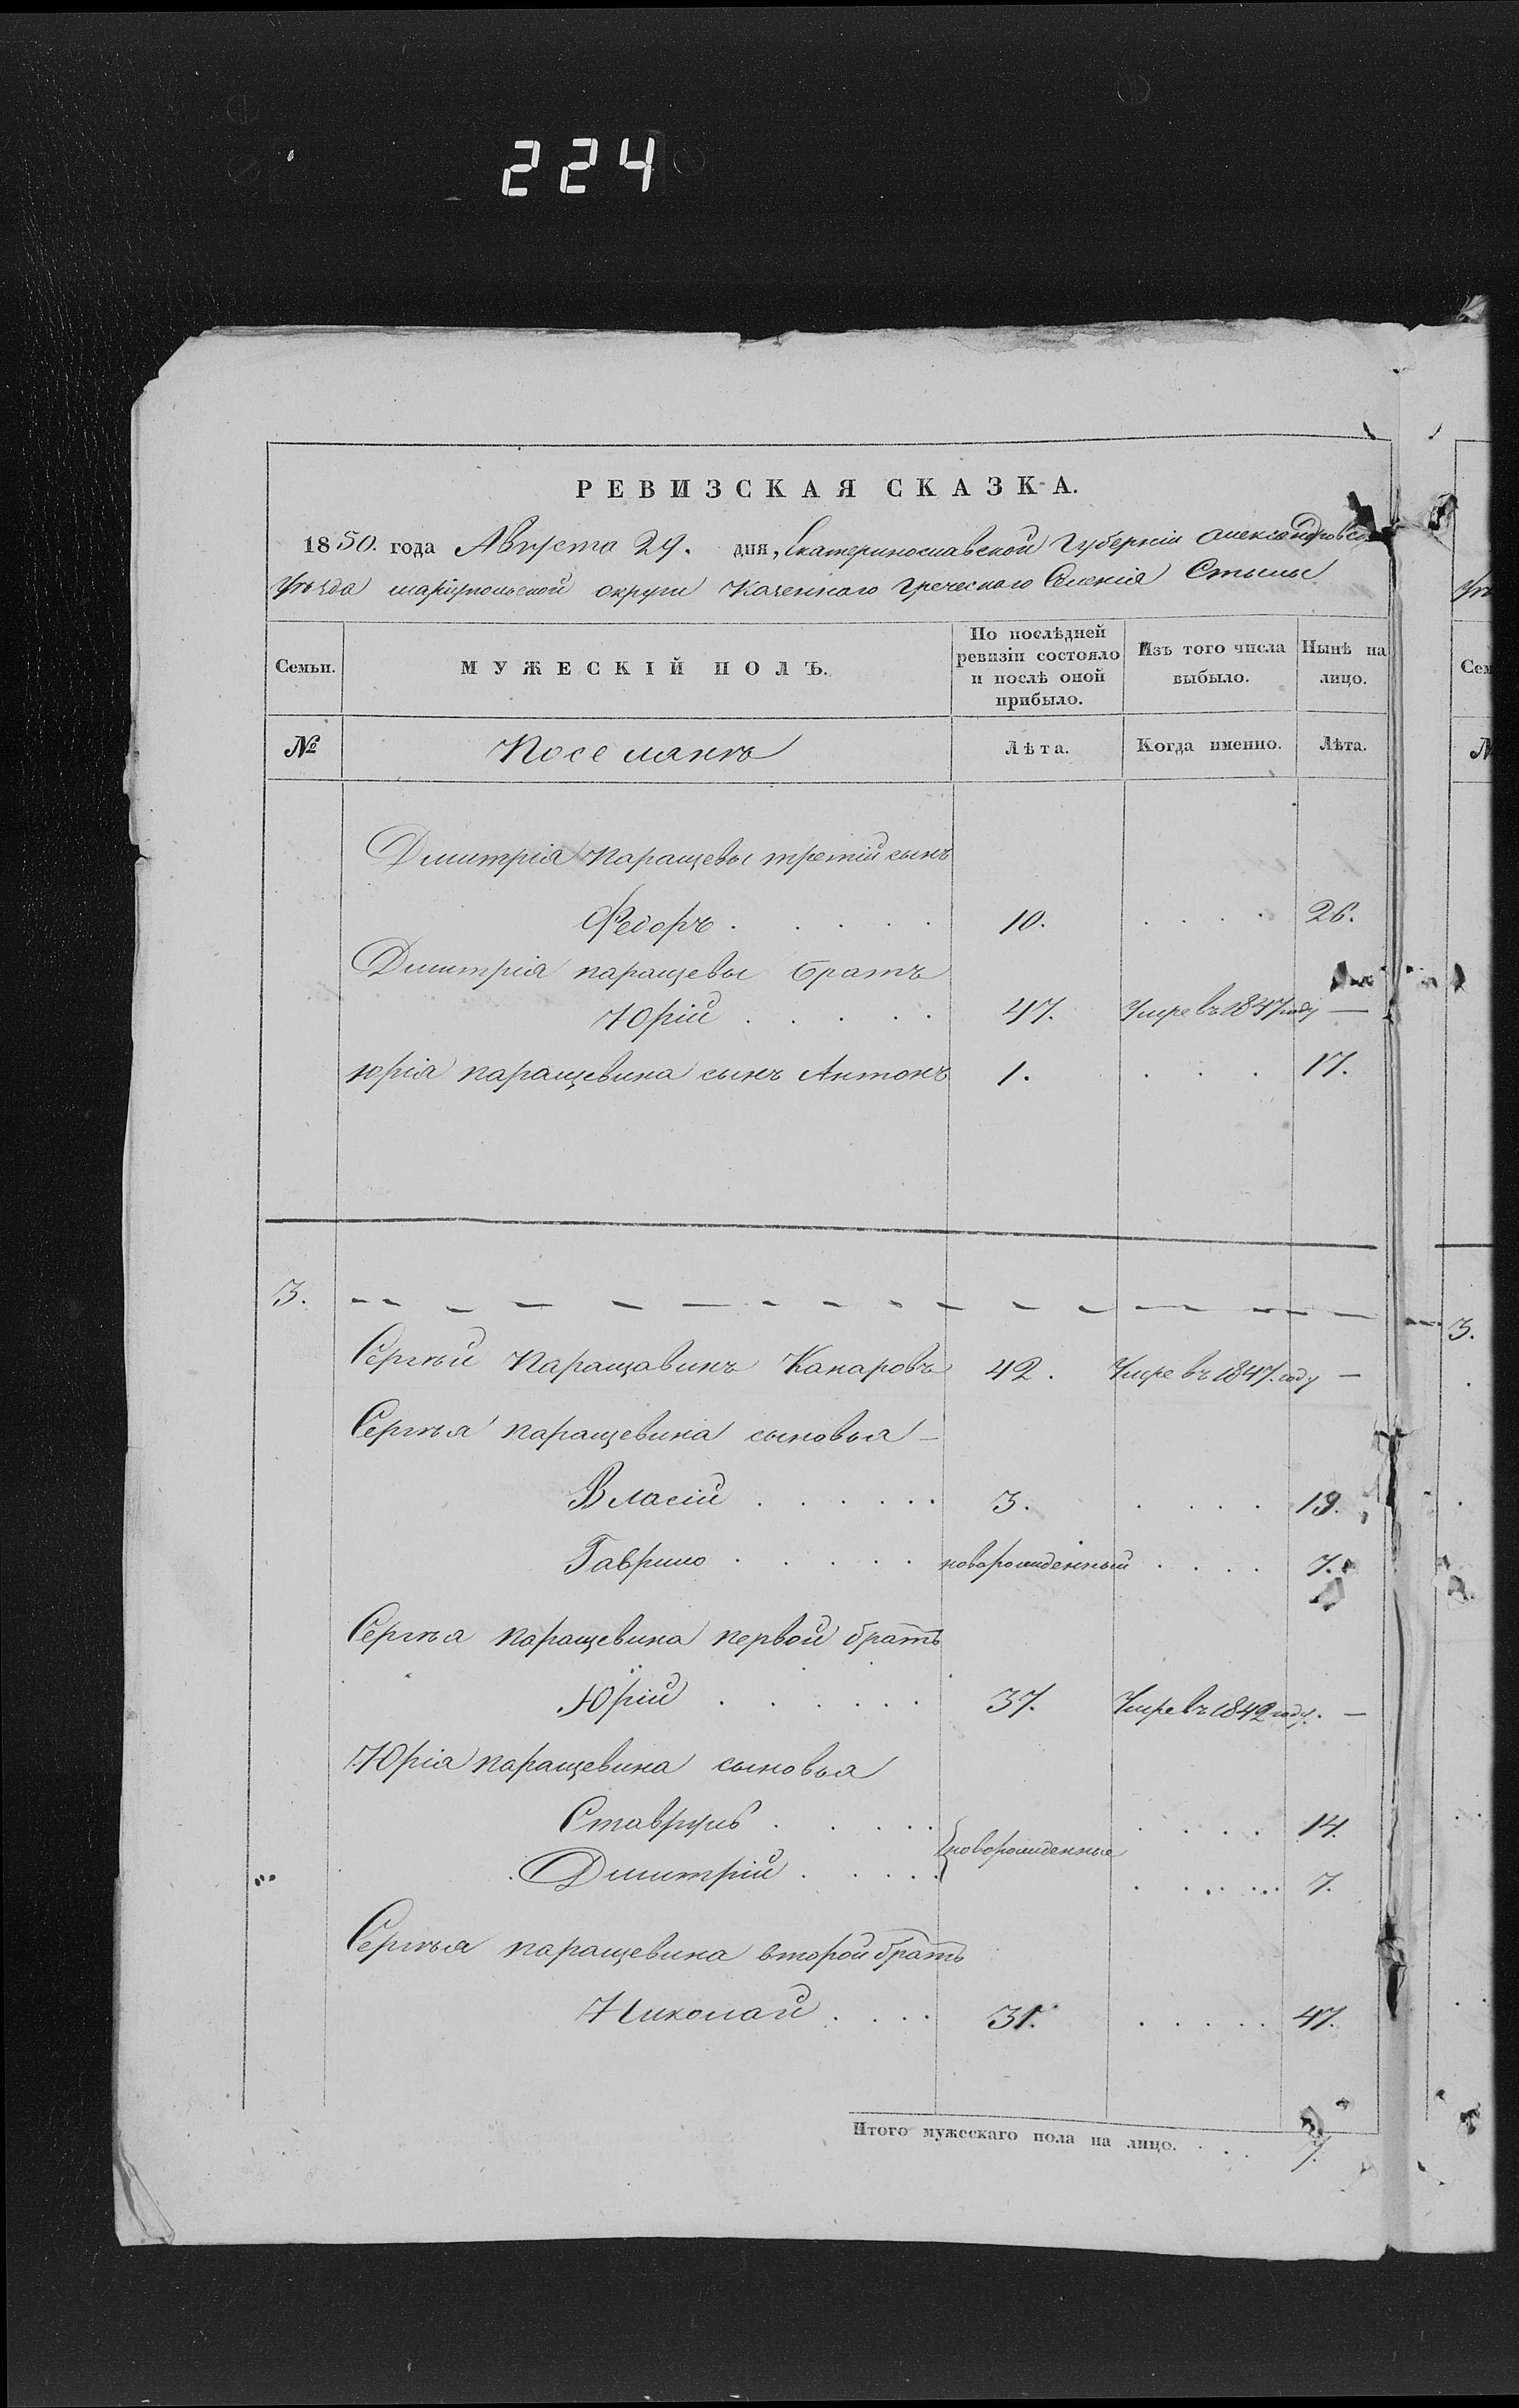 224
РЕВИЗСКАЯ СКАЗКА.
1850. года Августа 29. дня, Екатеринославской Губерніи Александровско
Уѣзда маріупольской округи Казеннаго греческаго Селенія Стылы
Семьи. МУЖЕСКІЙ ПОЛЪ. По послѣдней ревизіи состояло и послѣ оной прибыло. Изъ того числа выбыло. Нынѣ на лицо.
№ Поселянъ Лѣта. Когда именно. Лѣта.
Дмитрія Паращевы третій сынъ
Федоръ . . . . . 10. . . . . 26.
Дмитрія паращевы братъ
Юрій . . . . . 47. Умре въ 1847 году —
юрія паращевина сынъ Антонъ 1. . . . 17.
3.
Сергѣй Паращавинъ Капаровъ 42. Умре въ 1847. году —
Сергѣя паращевина сыновья —
Власій . . . . . . 3. . . . . 19.
Гаврило . . . . . новорожденный . . . . 7.
Сергѣя паращевина первой братъ
Юрій . . . . . . 37. Умре въ 1842 году. —
Юрія паращевина сыновья
Ставруль . . . . . . . . . 14.
новорожденные
Дмитрій . . . . . . . . . . . 7.
Сергѣя паращевина второй братъ
Николай . . . . 31. . . . . . 47.
Итого мужескаго пола на лицо. . . . 7.
3.